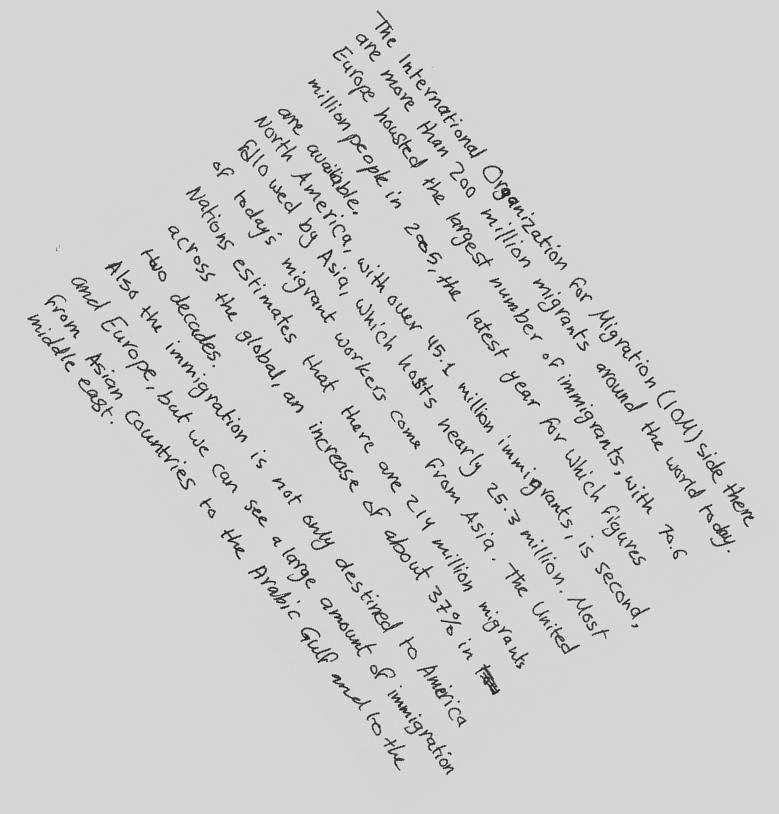 The International Organization for Migration (IOM) side there
are more than 200 million migrants around the world today.
Europe housted the largest number of immigrants, with 70.6
million people in 2005, the latest year for which figures
are available.
North America, with over 45.1 million immigrants, is second,
followed by Asia, which hosts nearly 25.3 million. Most
of today's migrant workers come from Asia. The United
Nations estimates that there are 214 million migrants
across the global, an increase of about 37% in
two decades.
Also the immigration is not only destined to America
and Europe, but we can see a large amount of immigration
from Asian countries to the Arabic Gulf and to the
middle east.